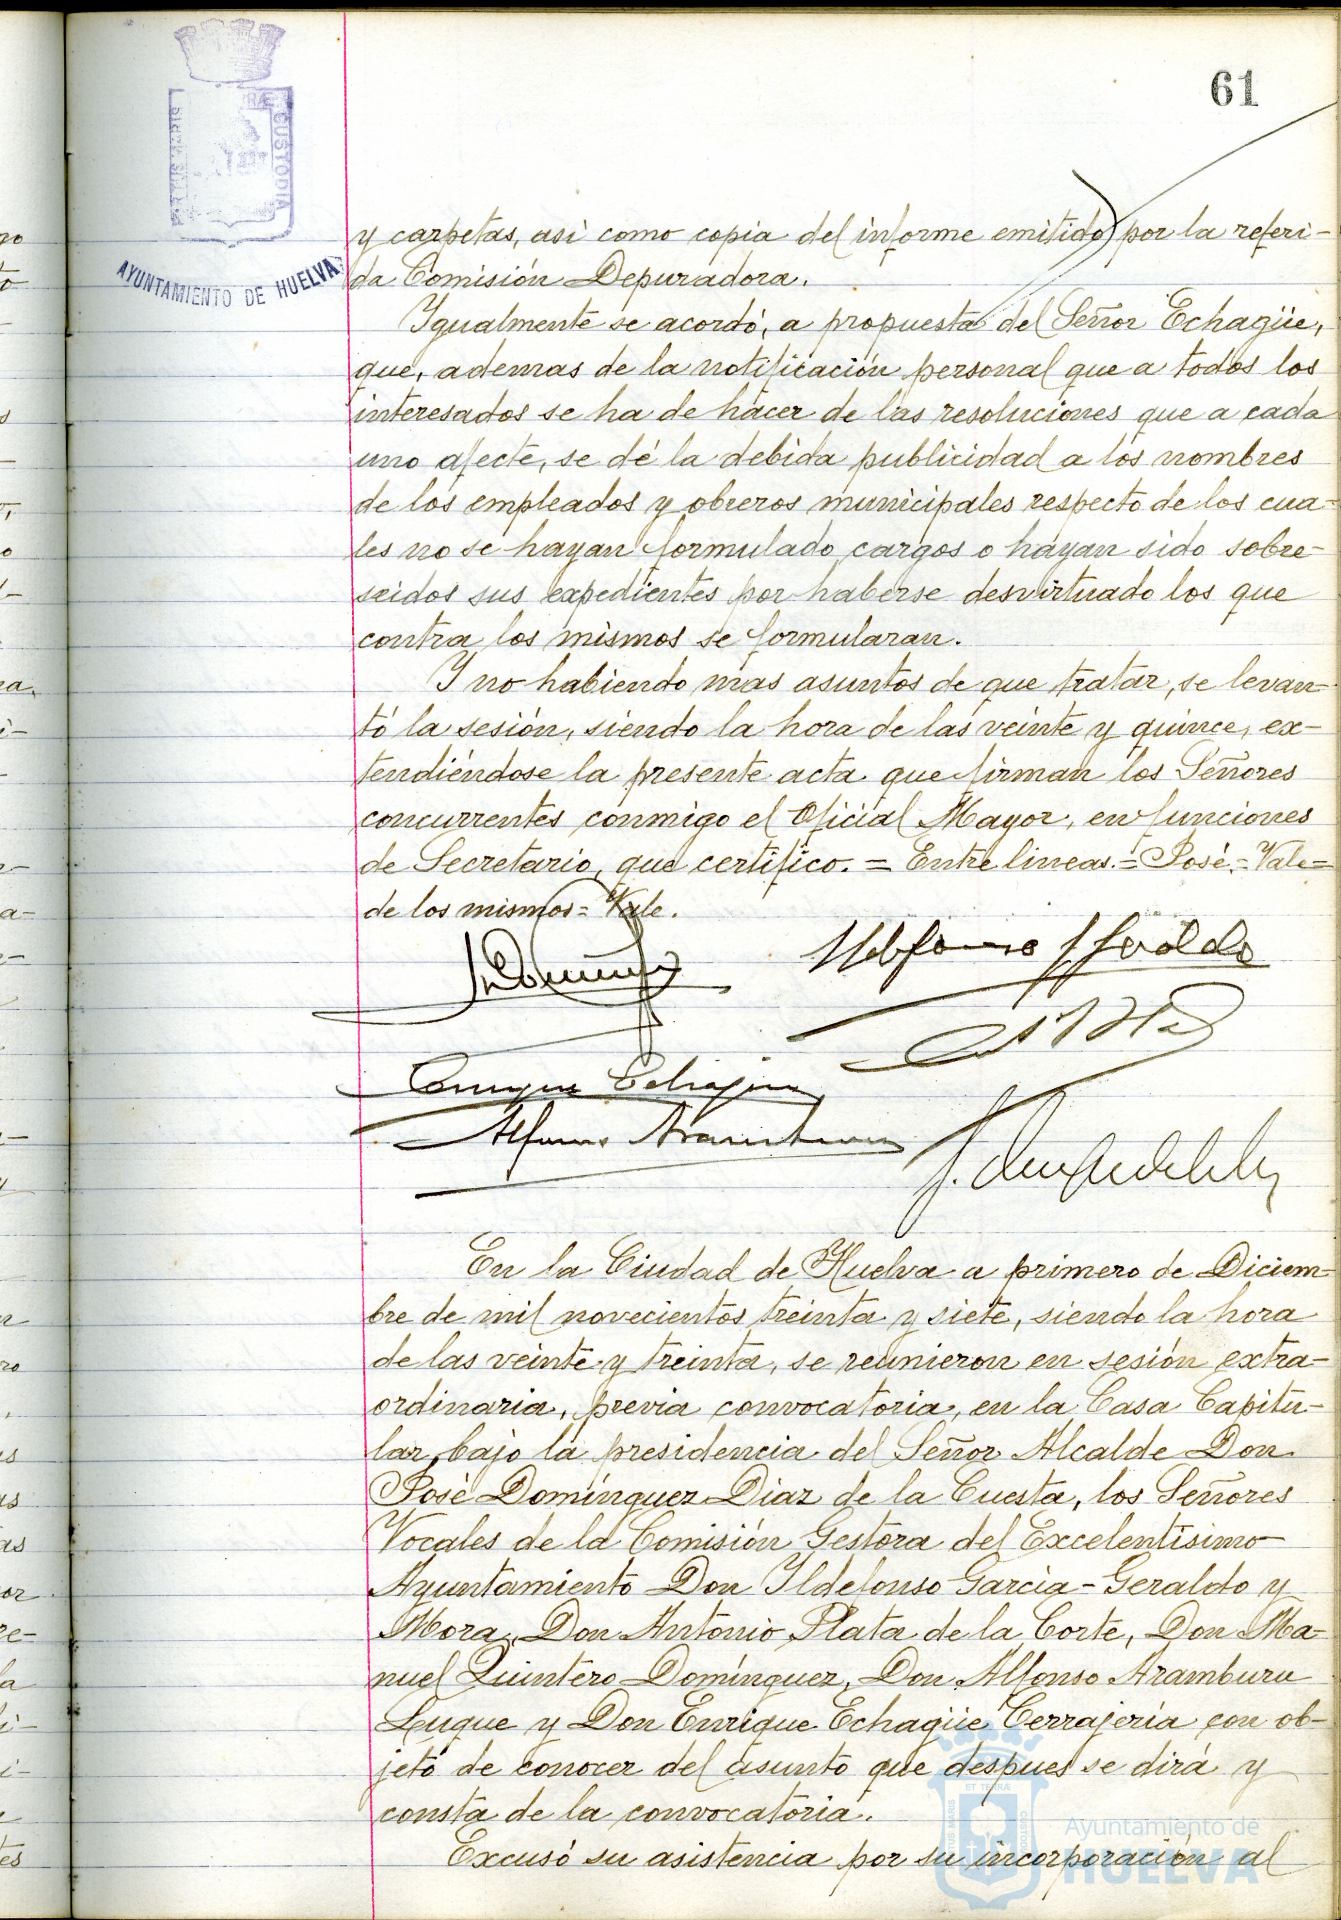 61
PORTUS MARIS
CUSTODIA
AYUNTAMIENTO DE HUELVA
y carpetas, asi como copia del informe emitido por la referi-
da Comisión Depuradora.
Igualmente se acordó, a propuesta del Señor Echagüe,
que, ademas de la notificación personal que a todos los
interesados se ha de hacer de las resoluciones que a cada
uno afecte, se dé la debida publicidad a los nombres
de los empleados y obreros municipales respecto de los cua-
les no se hayan formulado cargos o hayan sido sobre-
seidos sus expedientes por haberse desvirtuado los que
contra los mismos se formularan.
Y no habiendo mas asuntos de que tratar, se levan-
tó la sesión, siendo la hora de las veinte y quince, ex-
tendiéndose la presente acta que firman los Señores
concurrentes conmigo el Oficial Mayor, en funciones
de Secretario, que certifico. = Entre lineas. = José. = Vale =
de los mismos = Vale.
Ildefonso Geraldo
Enrique Echagüe
Alfonso Aramburu
En la Ciudad de Huelva a primero de Diciem-
bre de mil novecientos treinta y siete, siendo la hora
de las veinte y treinta, se reunieron en sesión extra-
ordinaria, previa convocatoria, en la Casa Capitu-
lar, bajo la presidencia del Señor Alcalde Don
José Domínguez Diaz de la Cuesta, los Señores
Vocales de la Comisión Gestora del Excelentisimo
Ayuntamiento Don Ildefonso Garcia-Geraldo y
Mora, Don Antonio Plata de la Corte, Don Ma-
nuel Quintero Domínguez, Don Alfonso Aramburu
Luque y Don Enrique Echagüe Cerrajeria con ob-
jeto de conocer del asunto que despues se dirá y
consta de la convocatoria.
Excusó su asistencia por su incorporación al
ET TERRAE
Ayuntamiento de
HUELVA